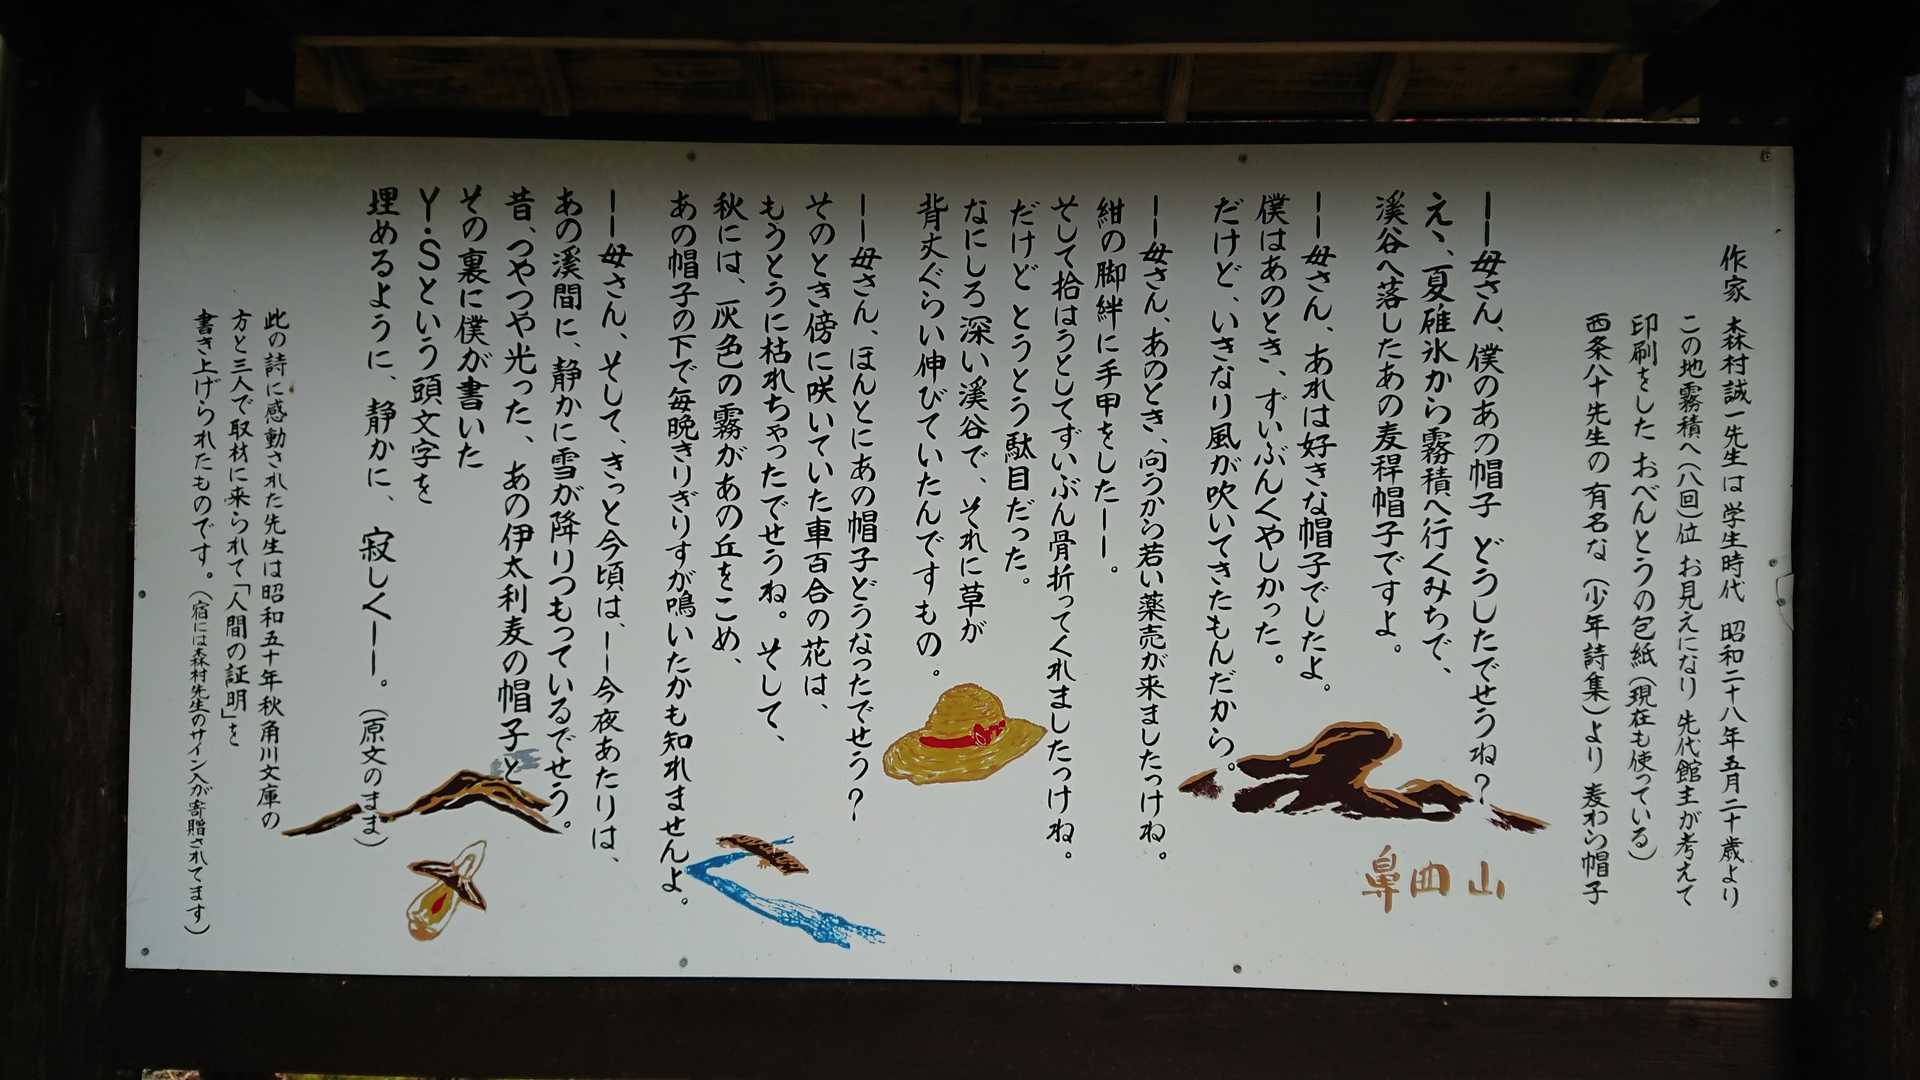 作家 森村誠一先生は学生時代 昭和二十八年五月二十歳より
この地霧積へ(八回)位 お見えになり 先代館主が考えて
印刷をした おべんとうの包紙(現在も使っている)
西条八十先生の有名な(少年詩集)より 麦わら帽子
ーー母さん、僕のあの帽子 どうしたでせうね?
えゝ、夏碓氷から霧積へ行くみちで、
溪谷へ落したあの麦稈帽子ですよ。
ーー母さん、あれは好きな帽子でしたよ。
僕はあのとき、ずいぶんくやしかった。
だけど、いきなり風が吹いてきたもんだから。
ーー母さん、あのとき、向うから若い薬売が来ましたっけね。
紺の脚絆に手甲をしたーー。
そして拾はうとしてずいぶん骨折ってくれましたっけね。
だけど とうとう駄目だった。
なにしろ深い溪谷で、それに草が
背丈ぐらい伸びていたんですもの。
ーー母さん、ほんとにあの帽子どうなったでせう?
そのとき傍に咲いていた車百合の花は、
もうとうに枯れちゃったでせうね。そして、
秋には、灰色の霧があの丘をこめ、
あの帽子の下で毎晩きりぎりすが鳴いたかも知れませんよ。
ーー母さん、そして、きっと今頃は、ーー今夜あたりは、
あの溪間に、静かに雪が降りつもっているでせう。
昔、つやつや光った、あの伊太利麦の帽子と
その裏に僕が書いた
Y・Sという頭文字を
埋めるように、静かに、寂しくーー。(原文のまま)
此の詩に感動された先生は昭和五十年秋角川文庫の
方と三人で取材に来られて「人間の証明」を
書き上げられたものです。(宿には森村先生のサイン入が寄贈されてます)
鼻曲山